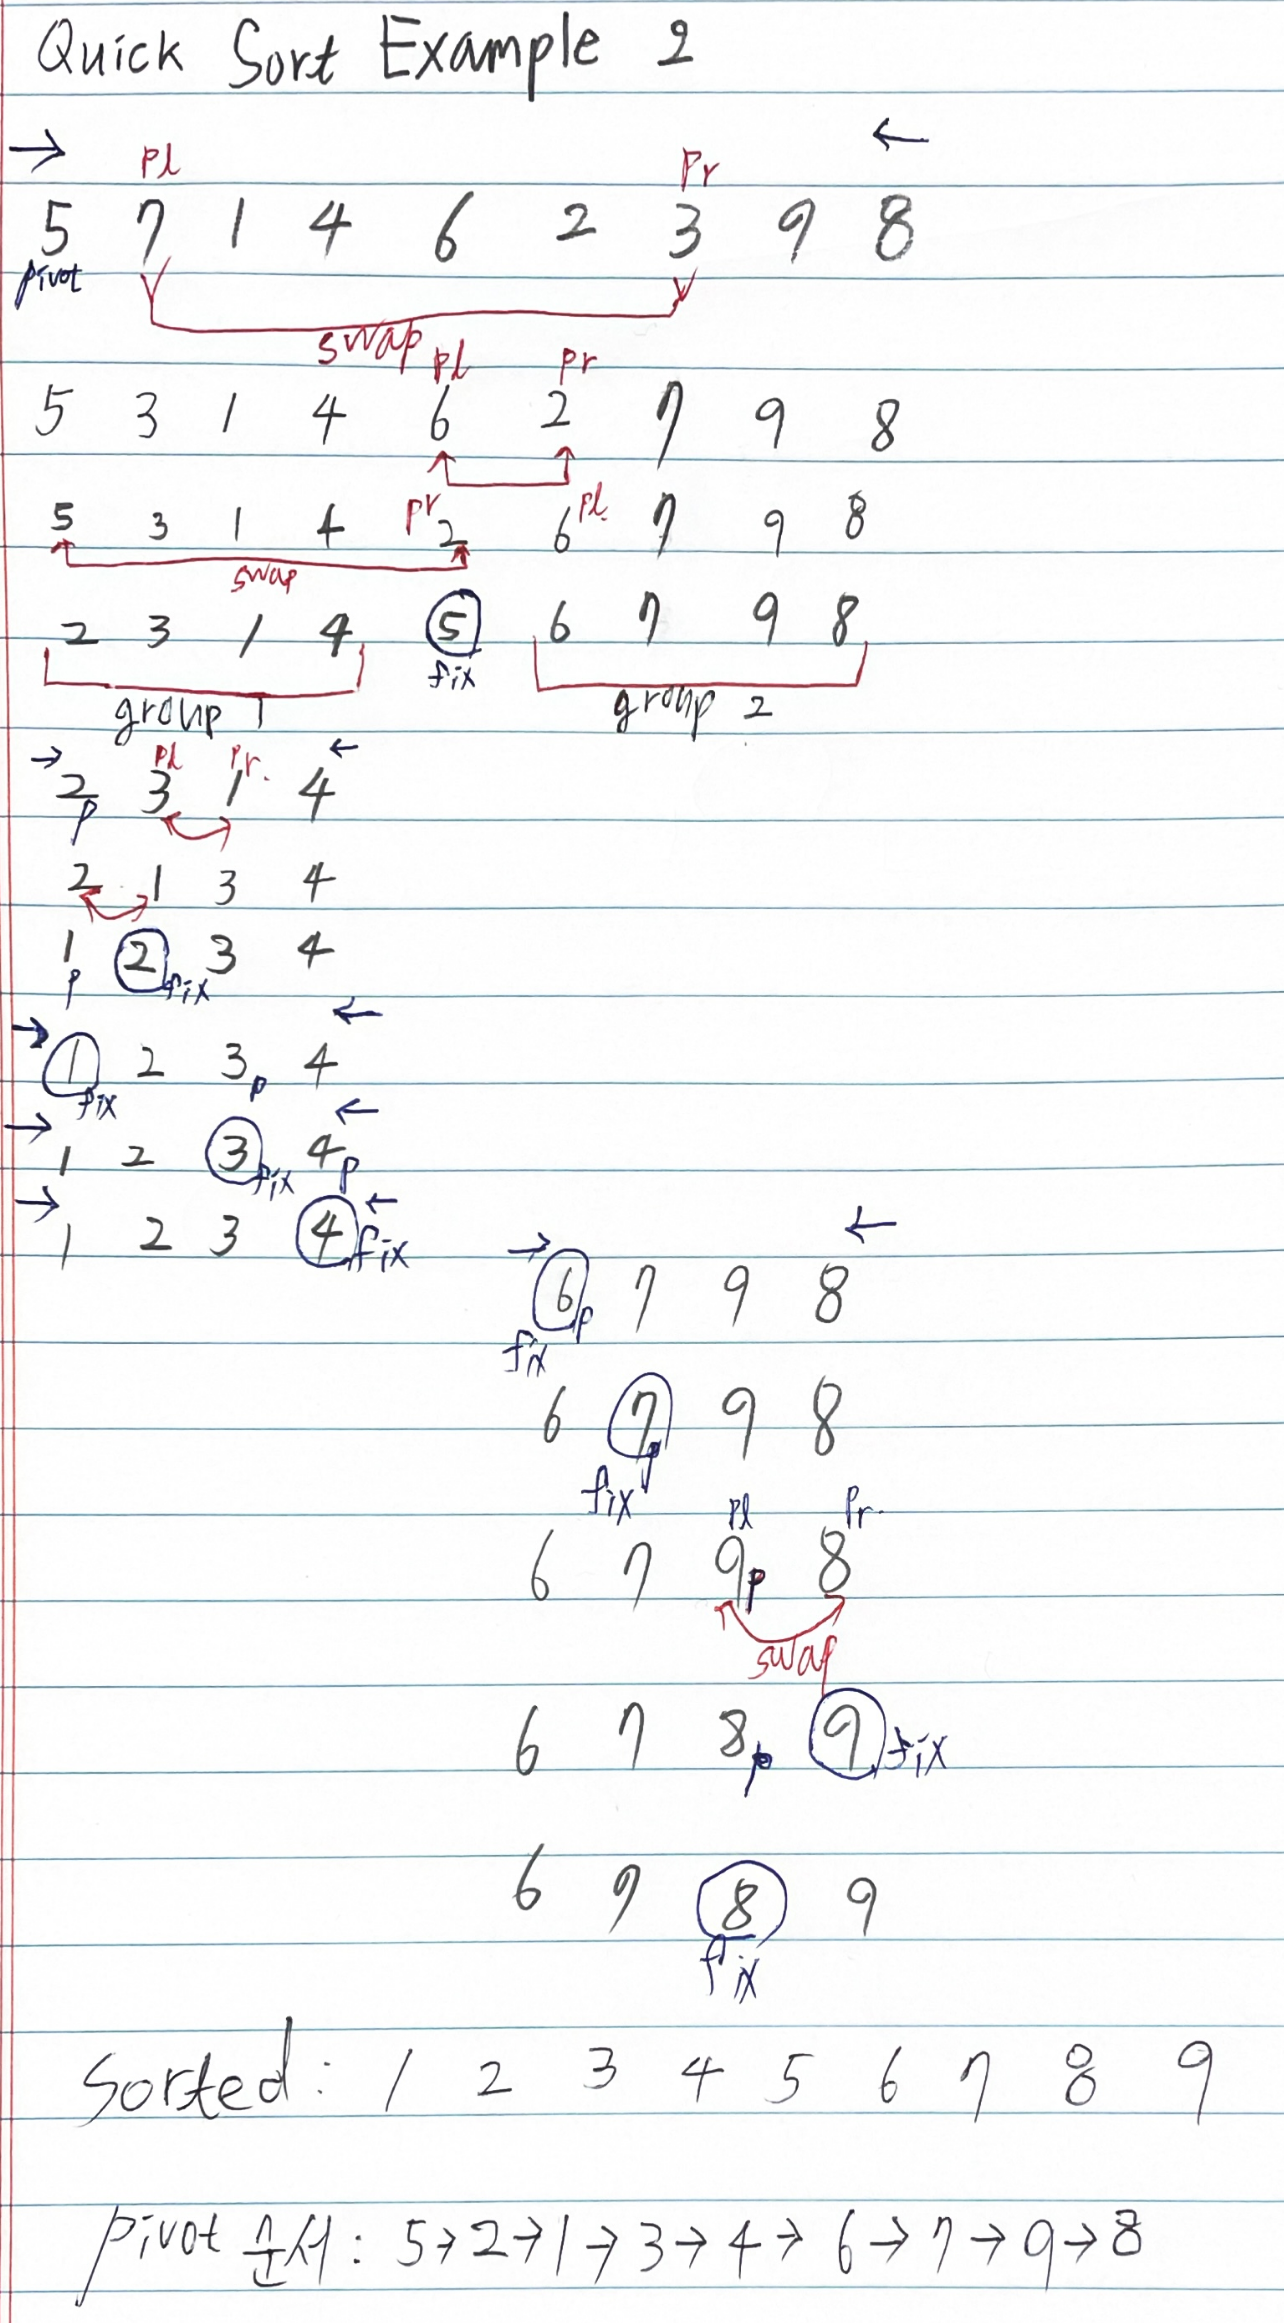 Quick Sort Example 2
→ ←
pl pr
5 7 1 4 6 2 3 9 8
pivot
swap
pl pr
5 3 1 4 6 2 7 9 8
pr pl
5 3 1 4 2 6 7 9 8
swap
2 3 1 4 5 6 7 9 8
fix
group 1 group 2
→ pl pr. ←
2 3 1 4
p
2 1 3 4
1 2 3 4
p fix
→ ←
1 2 3p 4
fix
→ ←
1 2 3 fix 4p
→ ←
1 2 3 4 fix
→ ←
6p 7 9 8
fix
6 7p 9 8
fix
pl pr.
6 7 9p 8
swap
6 7 8p 9 fix
6 7 8 9
fix
Sorted : 1 2 3 4 5 6 7 8 9
pivot 순서 : 5→2→1→3→4→6→7→9→8